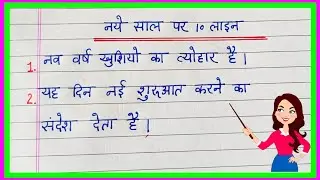 नये साल पर 10 लाइन
1. नव वर्ष खुशियो का त्योहार है।
2. यह दिन नई शुरूआत करने का
संदेश देता है।